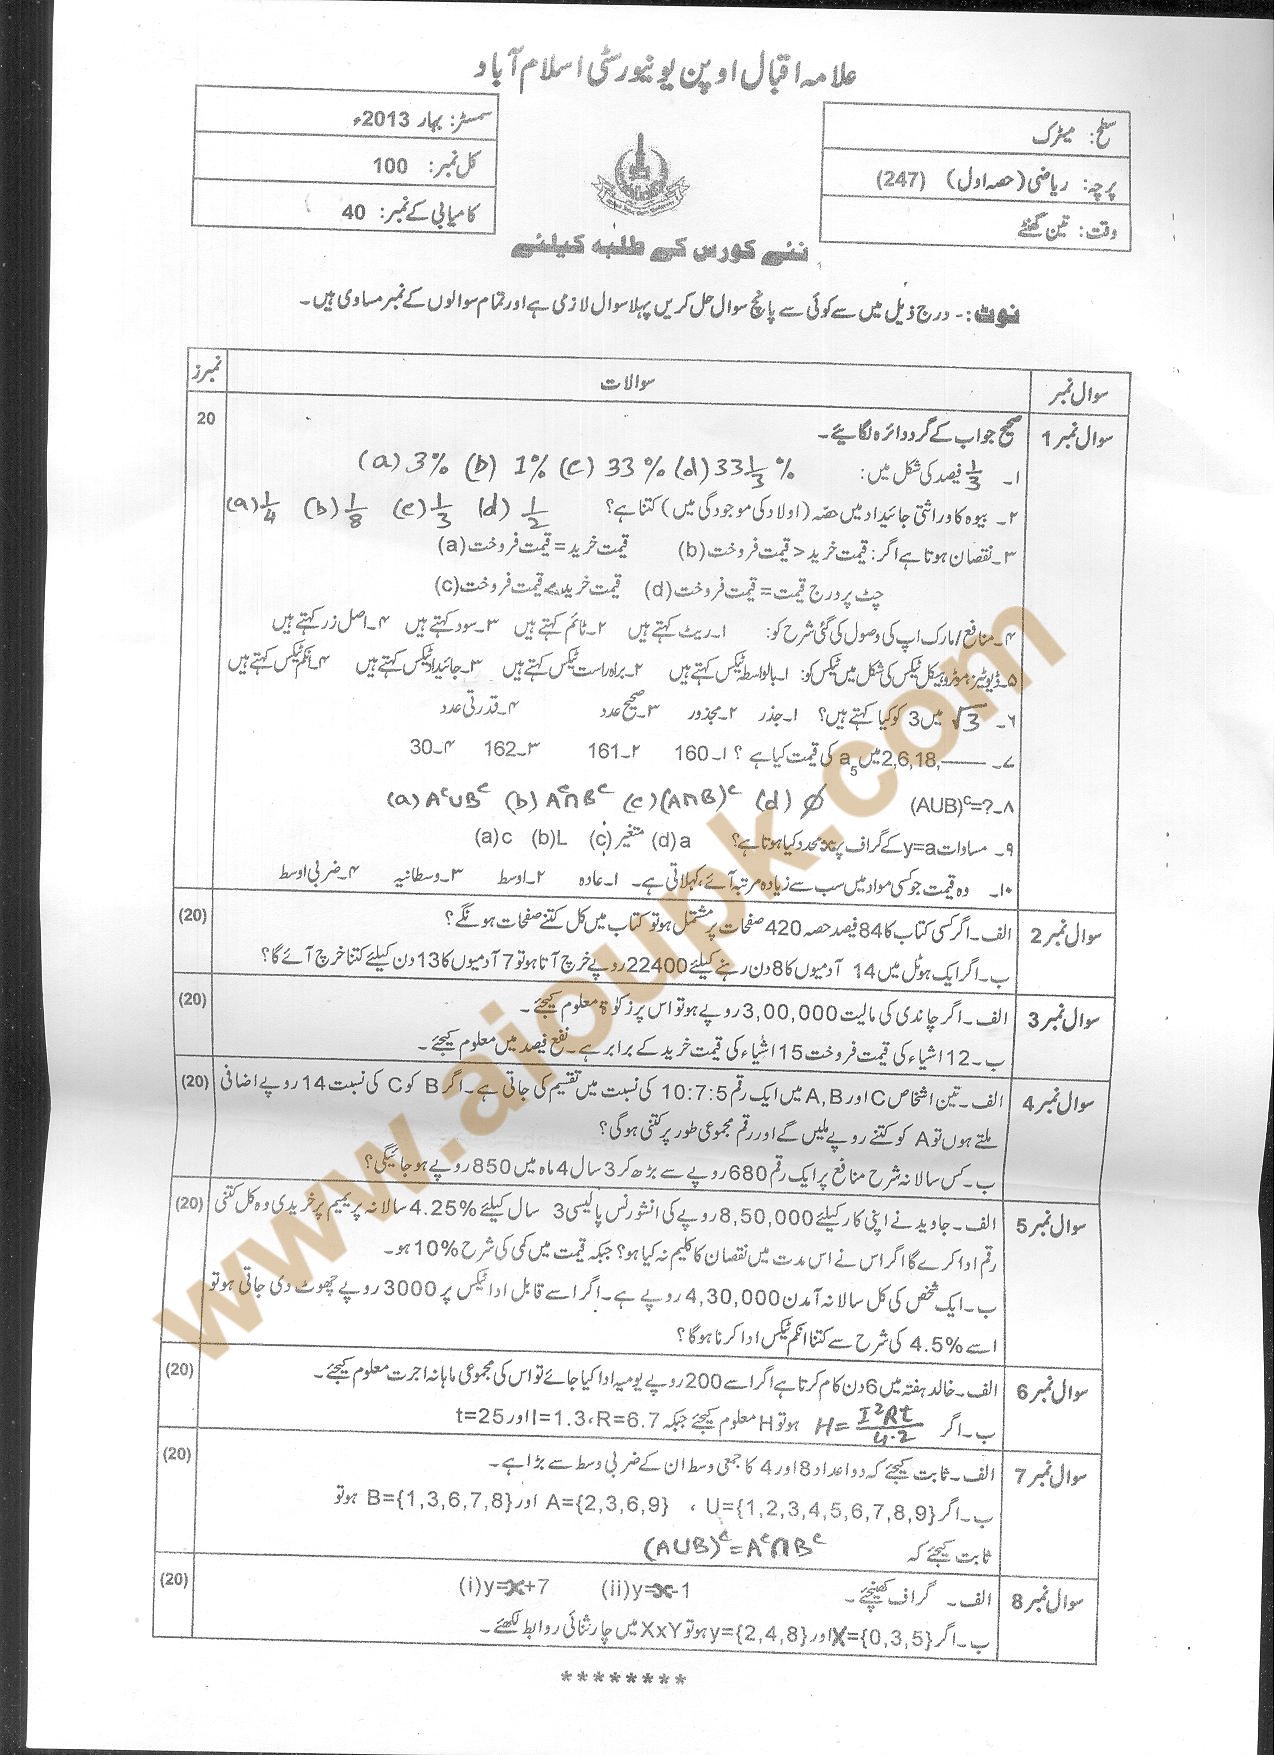 علامہ اقبال اوپن یونیورسٹی اسلام آباد
سطح: میٹرک
پرچہ: ریاضی (حصہ اول) (247)
وقت: تین گھنٹے
سمسٹر: بہار 2013ء
کل نمبر: 100
کامیابی کے نمبر: 40
نئے کورس کے طلبہ کیلئے
نوٹ:- درج ذیل میں سے کوئی سے پانچ سوال حل کریں پہلا سوال لازمی ہے اور تمام سوالوں کے نمبر مساوی ہیں۔
سوال نمبر سوالات نمبرز
سوال نمبر 1 صحیح جواب کے گرد دائرہ لگائیے۔ 20
۱۔ 1/3 فیصد کی شکل میں: (a) 3% (b) 1% (c) 33% (d) 33 1/3 %
۲۔ بیوہ کا وراثتی جائیداد میں حصہ (اولاد کی موجودگی میں) کتنا ہے؟ (a) 1/4 (b) 1/8 (c) 1/3 (d) 1/2
۳۔ نقصان ہوتا ہے اگر: قیمت خرید > قیمت فروخت (b) قیمت خرید = قیمت فروخت (a)
چٹ پر درج قیمت = قیمت فروخت (d) قیمت خرید قیمت فروخت (c)
۴۔ منافع/مارک اپ کی وصول کی گئی شرح کو: ۱۔ ریٹ کہتے ہیں ۲۔ ٹائم کہتے ہیں ۳۔ سود کہتے ہیں ۴۔ اصل زر کہتے ہیں
۵۔ ڈیوٹیز، موٹر وہیکل ٹیکس کی شکل میں ٹیکس کو: ۱۔ بالواسطہ ٹیکس کہتے ہیں ۲۔ براہ راست ٹیکس کہتے ہیں ۳۔ جائیداد ٹیکس کہتے ہیں ۴۔ انکم ٹیکس کہتے ہیں
۶۔ √3 میں 3 کو کیا کہتے ہیں؟ ۱۔ جذر ۲۔ مجذور ۳۔ صحیح عدد ۴۔ قدرتی عدد
۷۔ 2,6,18,—— میں a5 کی قیمت کیا ہے؟ ۱۔ 160 ۲۔ 161 ۳۔ 162 ۴۔ 30
۸۔ (AUB)ᶜ=? (a) AᶜUBᶜ (b) Aᶜ∩Bᶜ (c) (A∩B)ᶜ (d) ϕ
۹۔ مساوات y=a کے گراف پر x محدد کیا ہوتا ہے؟ (a) c (b) L (c) متغیر (d) a
۱۰۔ وہ قیمت جو کسی مواد میں سب سے زیادہ مرتبہ آئے، کہلاتی ہے۔ ۱۔ عادہ ۲۔ اوسط ۳۔ وسطانیہ ۴۔ ضربی اوسط
سوال نمبر 2 الف۔ اگر کسی کتاب کا 84 فیصد حصہ 420 صفحات پر مشتمل ہو تو کتاب میں کل کتنے صفحات ہونگے؟ (20)
ب۔ اگر ایک ہوٹل میں 14 آدمیوں کا 8 دن رہنے کیلئے 22400 روپے خرچ آتا ہو تو 7 آدمیوں کا 13 دن کیلئے کتنا خرچ آئے گا؟
سوال نمبر 3 الف۔ اگر چاندی کی مالیت 3,00,000 روپے ہو تو اس پر زکوٰۃ معلوم کیجئے۔ (20)
ب۔ 12 اشیاء کی قیمت فروخت 15 اشیاء کی قیمت خرید کے برابر ہے۔ نفع فیصد میں معلوم کیجئے۔
سوال نمبر 4 الف۔ تین اشخاص A,B اور C میں ایک رقم 10:7:5 کی نسبت میں تقسیم کی جاتی ہے۔ اگر B کو C کی نسبت 14 روپے اضافی (20)
ملتے ہوں تو A کو کتنے روپے ملیں گے اور رقم مجموعی طور پر کتنی ہوگی؟
ب۔ کس سالانہ شرح منافع پر ایک رقم 680 روپے سے بڑھ کر 3 سال 4 ماہ میں 850 روپے ہو جائیگی؟
سوال نمبر 5 الف۔ جاوید نے اپنی کار کیلئے 8,50,000 روپے کی انشورنس پالیسی 3 سال کیلئے 4.25% سالانہ پریمیم پر خریدی وہ کل کتنی (20)
رقم ادا کرے گا اگر اس نے اس مدت میں نقصان کا کلیم نہ کیا ہو؟ جبکہ قیمت میں کمی کی شرح 10% ہو۔
ب۔ ایک شخص کی کل سالانہ آمدن 4,30,000 روپے ہے۔ اگر اسے قابل ادا ٹیکس پر 3000 روپے چھوٹ دی جاتی ہو تو
اسے 4.5% کی شرح سے کتنا انکم ٹیکس ادا کرنا ہوگا؟
سوال نمبر 6 الف۔ خالد ہفتہ میں 6 دن کام کرتا ہے اگر اسے 200 روپے یومیہ ادا کیا جائے تو اس کی مجموعی ماہانہ اجرت معلوم کیجئے۔ (20)
ب۔ اگر H = I²Rt/4.2 ہو تو H معلوم کیجئے جبکہ I=1.3، R=6.7 اور t=25
سوال نمبر 7 الف۔ ثابت کیجئے کہ دو اعداد 8 اور 4 کا جمعی وسط ان کے ضربی وسط سے بڑا ہے۔ (20)
ب۔ اگر U={1,2,3,4,5,6,7,8,9} ، A={2,3,6,9} اور B={1,3,6,7,8} ہو تو
ثابت کیجئے کہ (AUB)ᶜ=Aᶜ∩Bᶜ
سوال نمبر 8 الف۔ گراف کھینچئے۔ (i) y=x+7 (ii) y=x-1 (20)
ب۔ اگر X={0,3,5} اور y={2,4,8} ہو تو XxY میں چار ثنائی روابط لکھئے۔
********
www.aioupk.com